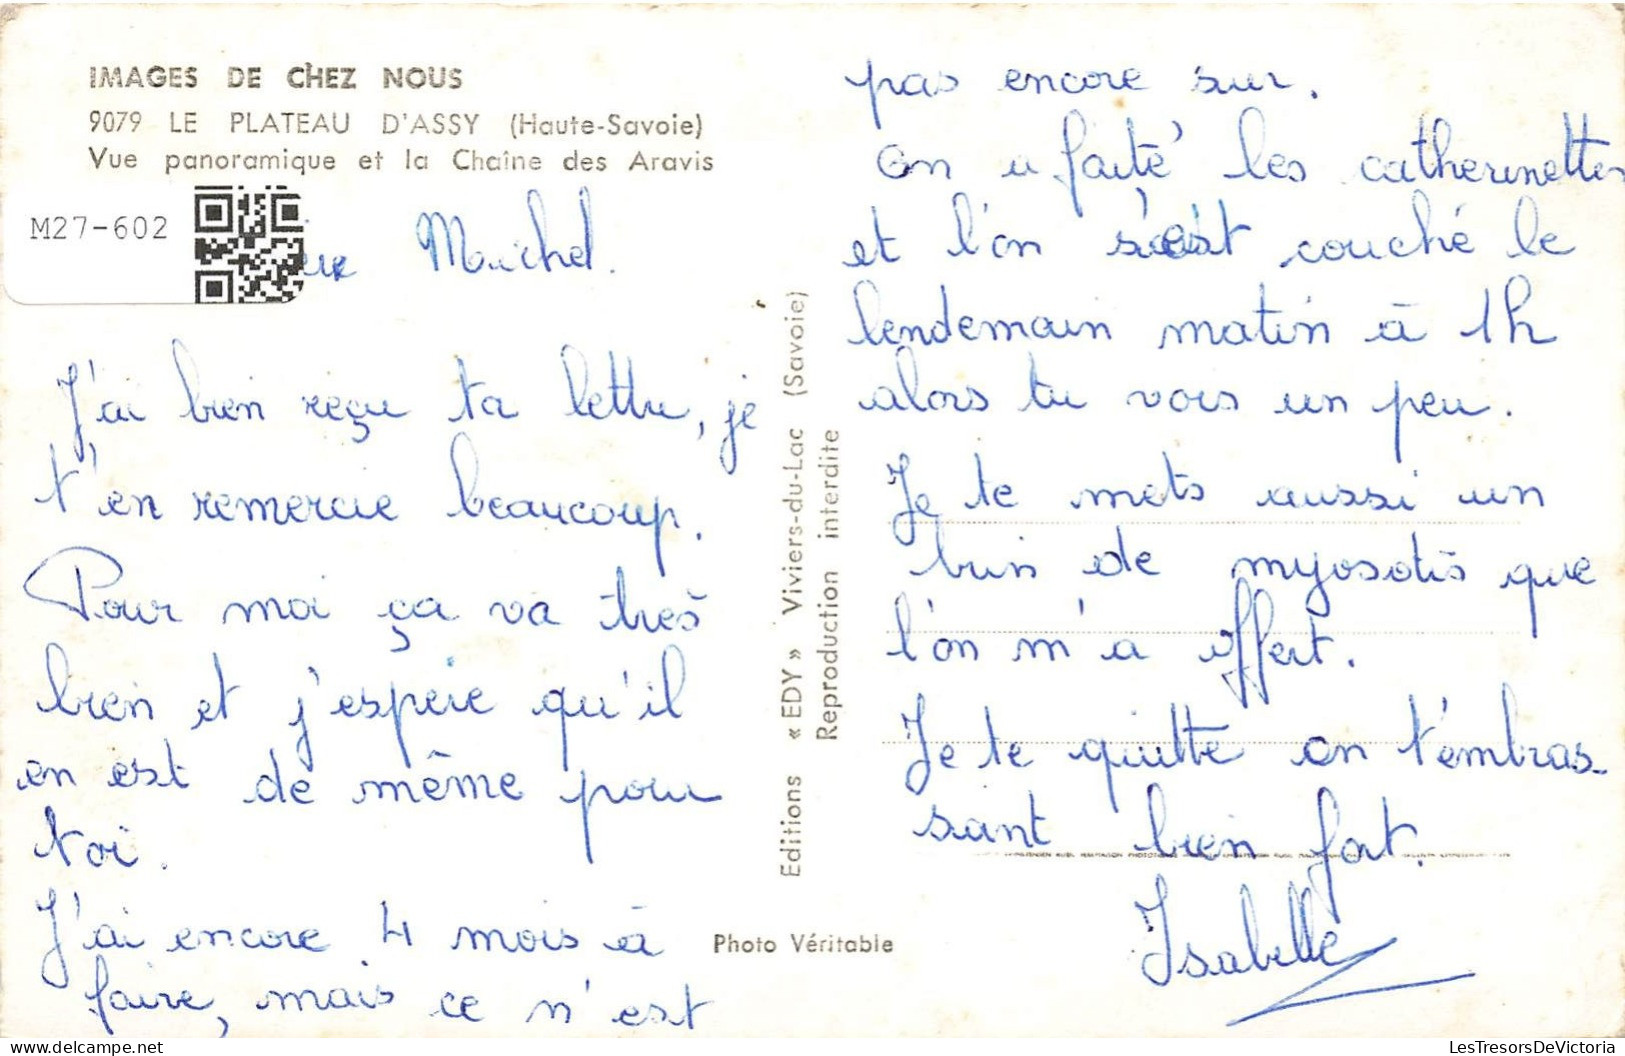 IMAGES DE CHEZ NOUS
9079 LE PLATEAU D'ASSY (Haute-Savoie)
Vue panoramique et la Chaîne des Aravis
M27-602
Michel.
J'ai bien reçu ta lettre, je
t'en remercie beaucoup.
Pour moi ça va très
bien et j'espère qu'il
en est de même pour
toi.
J'ai encore 4 mois à
faire, mais ce n'est
Editions « EDY » Viviers-du-Lac (Savoie)
Reproduction interdite
Photo Véritable
pas encore sur.
On a faité les catherinettes
et l'on s'est couché le
lendemain matin à 1h
alors tu vois un peu.
Je te mets aussi un
brin de myosotis que
l'on m'a offert.
Je te quitte en t'embras-
sant bien fort.
Isabelle
LesTresorsDeVictoria.com